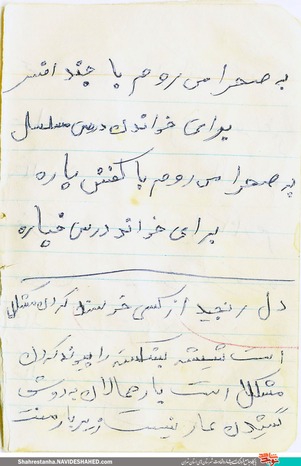 به صحرا می روم با چند افسر
برای خواندن درس مسلسل
به صحرا می روم با کفش پاره
برای خواندن درس خپاره
دل رنجید از کسی خرسند کردن مشکل
است شیشه بشکسته را پیوند کردن
مشکل است بار حمالان بدوش
کشیدن عار نیست زیر بار منت
Shahrestanha.NAVIDESHAHED.com